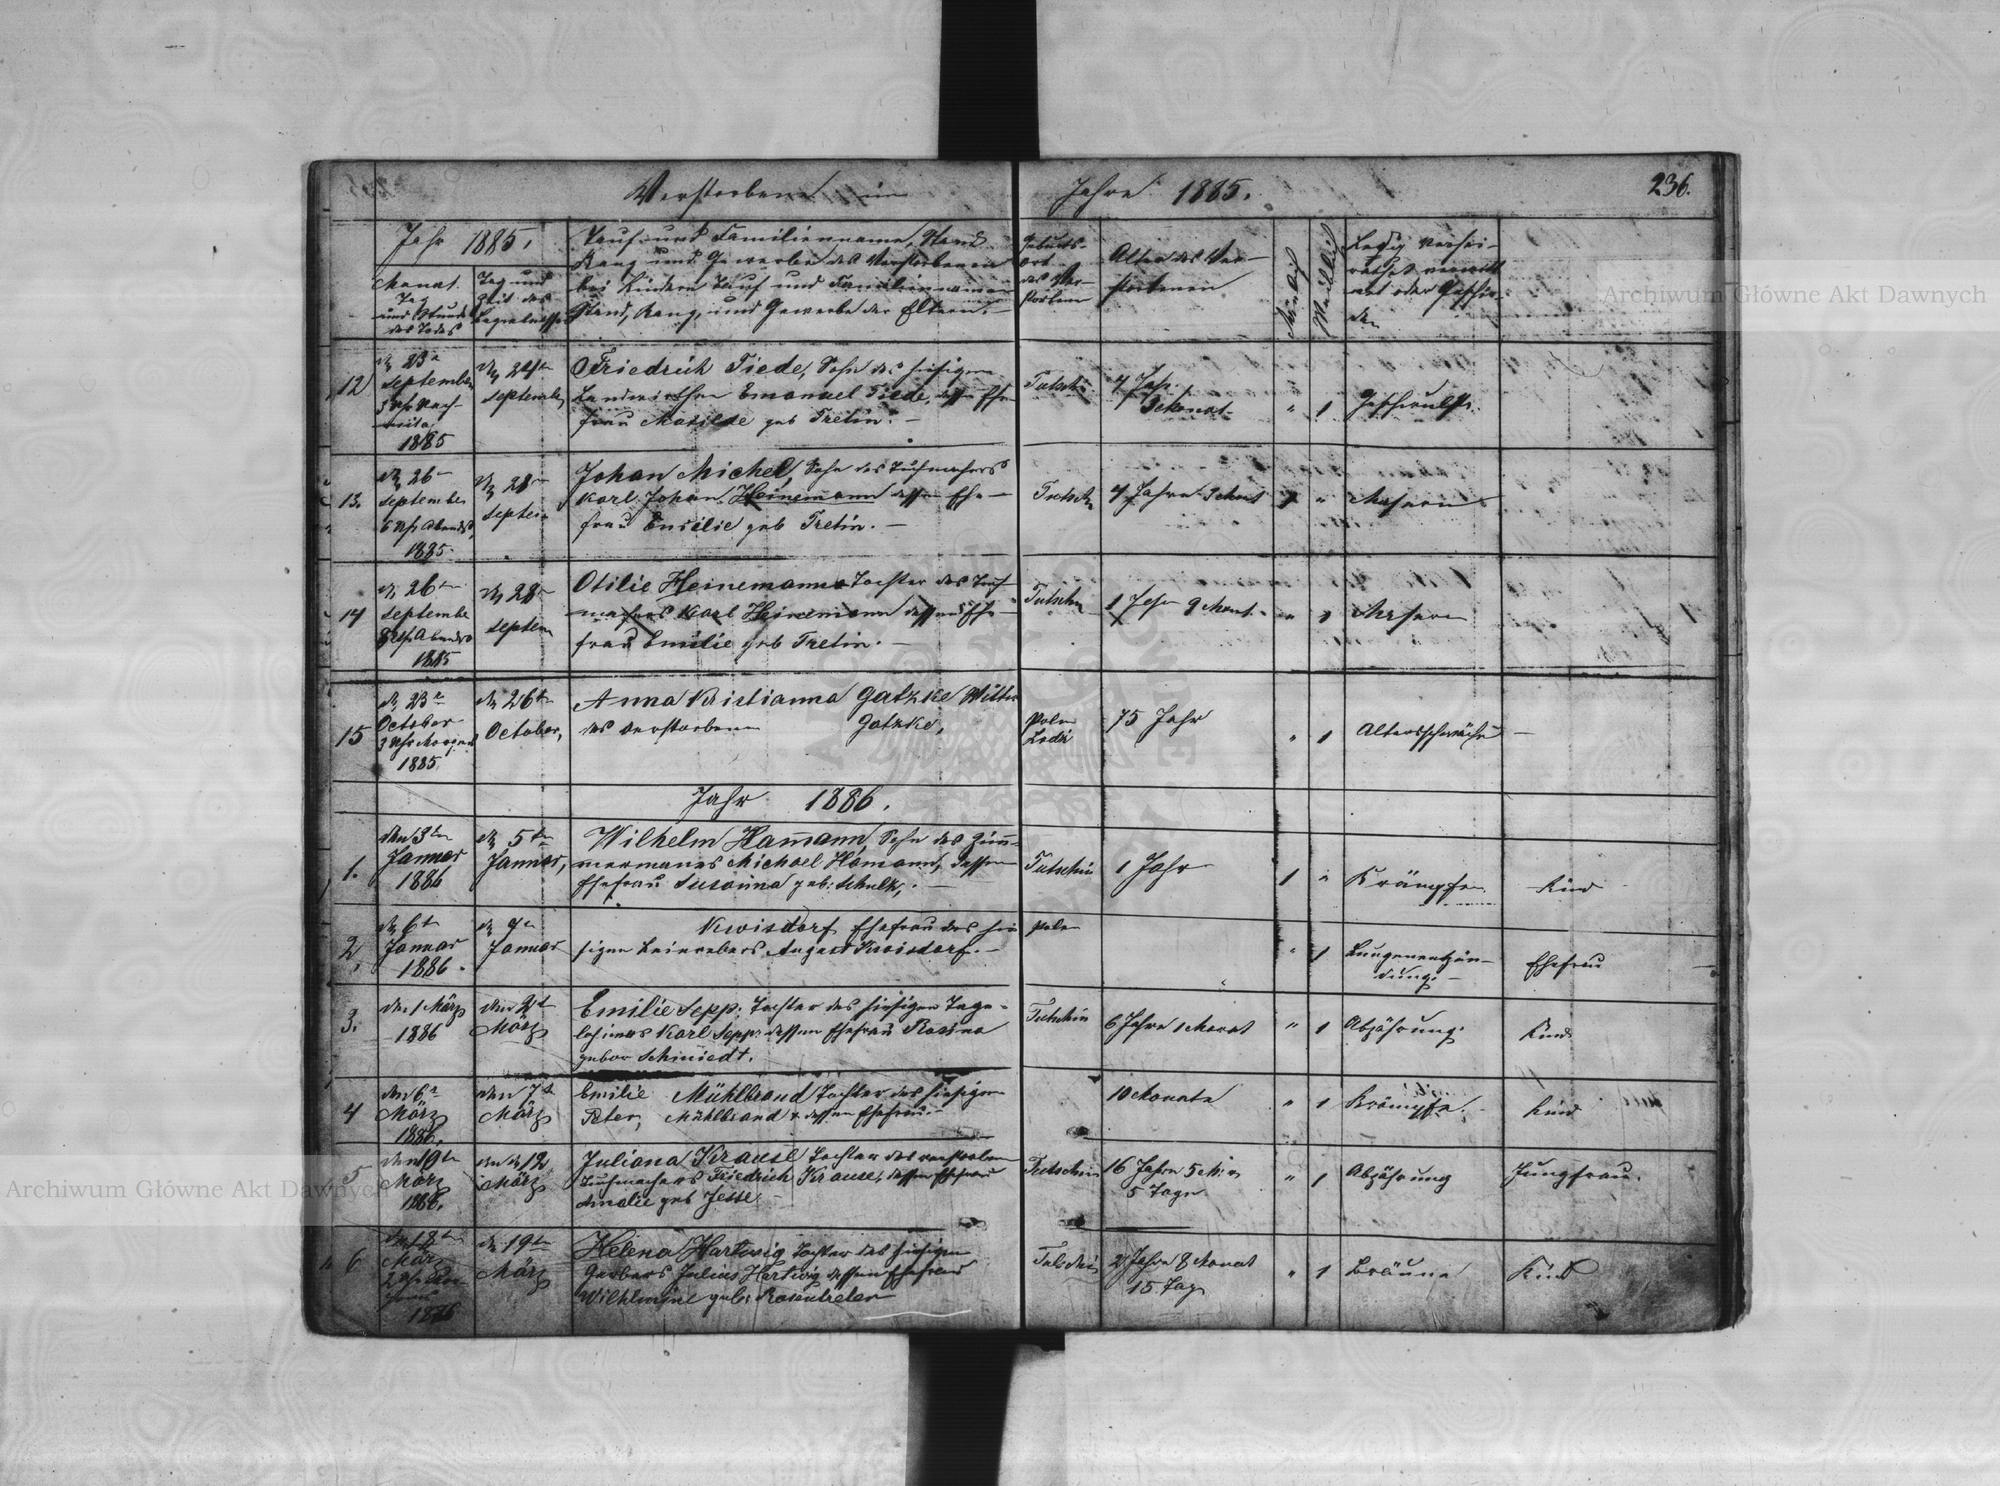 Verstorbene im Jahre 1885.
236.
Jahr 1885.
Monat
Tag
und Stunde
des Todes
Tag und
Zeit des
Begräbnisses
Tauf- und Familienname, Stand
Rang und Gewerbe des Verstorbenen
bei Kindern Tauf und Familiennamen
Stand, Rang, und Gewerbe der Eltern.
Geburts-
ort
des Ver-
storben
Alter des Ver-
storbenen
Männlich
Weiblich
Ledig verhei-
rathet
oder
12
23
September
3 Uhr Nach-
mittag
1885
24ten
September
Friedrich Tiede, Sohn des hiesigen
Landwirthen Emanuel Tiede, dessen Ehe-
frau Matilde geb Tretin. —
Tutschin
4 Jahr
3 Monat
" 1
13.
26
September
6 Uhr Abends
1885.
28
Septem
Johan Michel, Sohn des Tuchmachers
Karl Johan Heinemann dessen Ehe-
frau Emilie geb Tretin. —
Tutschin
4 Jahre
Masern
14
26ten
September
8 Uhr Abends
1885
28
Septem
Otilie Heinemann Tochter des Tuch-
machers Karl Heinemann dessen Ehe-
frau Emilie geb Tretin. —
Tutschin
1 Jahr 9 Monat.
Masern
15
23
October
3 Uhr Morgens
1885
26ten
October,
Anna Kristianna Gatzke Wittwe
des verstorbenen Gatzke,
Polen
Lodz
75 Jahr
" 1
Altersschwäche
Jahr 1886.
1.
den 3ten
Januar
1886
5ten
Januar,
Wilhelm Hamann, Sohn des Zim-
mermanns Michael Hamann, dessen
Ehefrau Susanna geb: Schulz. —
Tutschin
1 Jahr
1 "
Krämpfe
Kind
2.
6t
Januar
1886.
Januar
Kwisdorf Ehefrau des hie-
sigen Leinwebers August Kwisdorf. —
Polen
" 1
Lungenentzün-
dung.
Ehefrau
3.
den 1 März
1886
den 2t
März
Emilie Sepp. Tochter des hiesigen Tage-
löhners Karl Sepp. dessen Ehefrau Rosina
gebor Schmiedt.
Tutschin
6 Jahre 1 Monat
" 1
Abzährung.
Kind
4
den 6
März
1886.
den 7t
März
Emilie Mühlbrand Tochter des hiesigen
Peter Mühlbrand & dessen Ehefrau. —
10 Monate
" 1
Krämpfe.
Kind
5
den 10ten
März
1886.
den 12
März
Juliana Krause Tochter des verstorbenen
Tuchmachers Friedrich Krause, dessen Ehefrau
Amalie geb Jesse
Tutschin
16 Jahre 5
5 Tage
" 1
Abzährung
Jungfrau.
6
18ten
März
19ten
März
Helena Hartwig Tochter des hiesigen
Gerbers Julius Hartwig dessen Ehefrau
Wilhlmine geb:
Tutschin
2 Jahre 8 Monat
15 Tag
" 1
Bräune
Kind
Archiwum Główne Akt Dawnych
Archiwum Główne Akt Dawnych